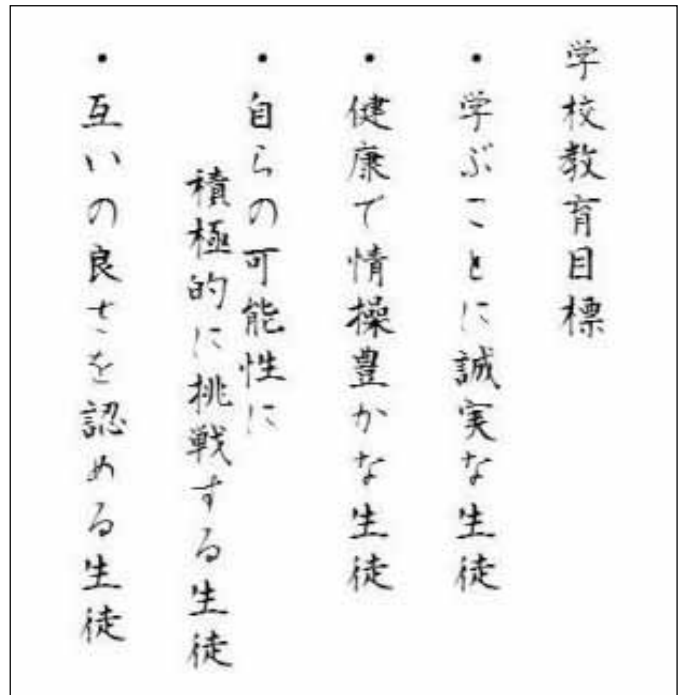 学校教育目標
・学ぶことに誠実な生徒
・健康で情操豊かな生徒
・自らの可能性に
積極的に挑戦する生徒
・互いの良さを認める生徒